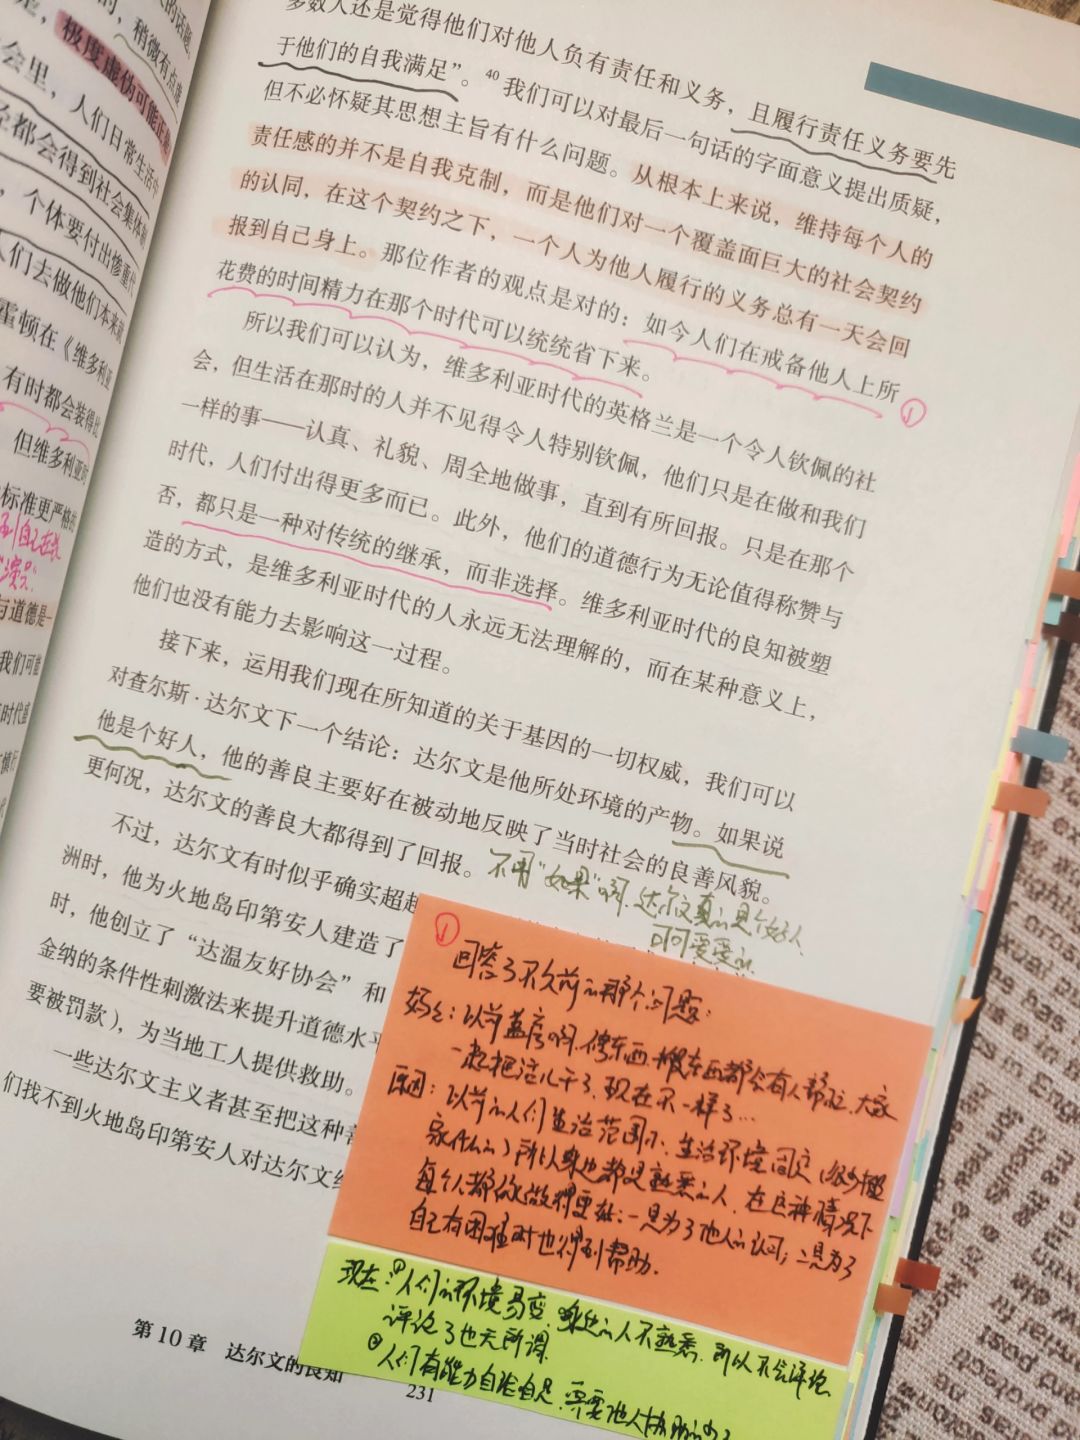 的话题,
稍微有点虚
极度虚伪可能正是
会里,人们日常生活中
都会得到社会集体制
,个体要付出惨重代
人们去做他们本来就
霍顿在《维多利亚
有时都会装得比
但维多利亚时
标准更严格的
与道德是一
我们可能
多数人还是觉得他们对他人负有责任和义务,且履行责任义务要先
于他们的自我满足”。40 我们可以对最后一句话的字面意义提出质疑,
但不必怀疑其思想主旨有什么问题。从根本上来说,维持每个人的
责任感的并不是自我克制,而是他们对一个覆盖面巨大的社会契约
的认同,在这个契约之下,一个人为他人履行的义务总有一天会回
报到自己身上。那位作者的观点是对的:如今人们在戒备他人上所
花费的时间精力在那个时代可以统统省下来。
①
所以我们可以认为,维多利亚时代的英格兰是一个令人钦佩的社
会,但生活在那时的人并不见得令人特别钦佩,他们只是在做和我们
一样的事——认真、礼貌、周全地做事,直到有所回报。只是在那个
时代,人们付出得更多而已。此外,他们的道德行为无论值得称赞与
否,都只是一种对传统的继承,而非选择。维多利亚时代的良知被塑
造的方式,是维多利亚时代的人永远无法理解的,而在某种意义上,
他们也没有能力去影响这一过程。
接下来,运用我们现在所知道的关于基因的一切权威,我们可以
对查尔斯·达尔文下一个结论:达尔文是他所处环境的产物。如果说
他是个好人,他的善良主要好在被动地反映了当时社会的良善风貌。
更何况,达尔文的善良大都得到了回报。
不用“如果”啊,达尔文真的是个好人
可可爱爱的
不过,达尔文有时似乎确实超越
洲时,他为火地岛印第安人建造了
时,他创立了“达温友好协会”和
金纳的条件性刺激法来提升道德水平
要被罚款),为当地工人提供救助。
一些达尔文主义者甚至把这种善
们找不到火地岛印第安人对达尔文
①
回答了不久前的那个问题:
妈妈:以前盖房啊,借东西,搬东西都会有人帮忙,大家
一起把活儿干了,现在不一样了…
原因:以前的人们生活范围小,生活环境固定(很少搬
家Ah的)所以身边都是熟悉的人,在这种情况下
每个人都做得更好:一是为了他人的认可;二是为了
自己有困难时也得到帮助.
现在:①人们的环境易变,身边的人不熟悉,所以不会评论
评论了也无所谓
②人们有能力自给自足,需要他人协助的少了
第10章 达尔文的良知
231